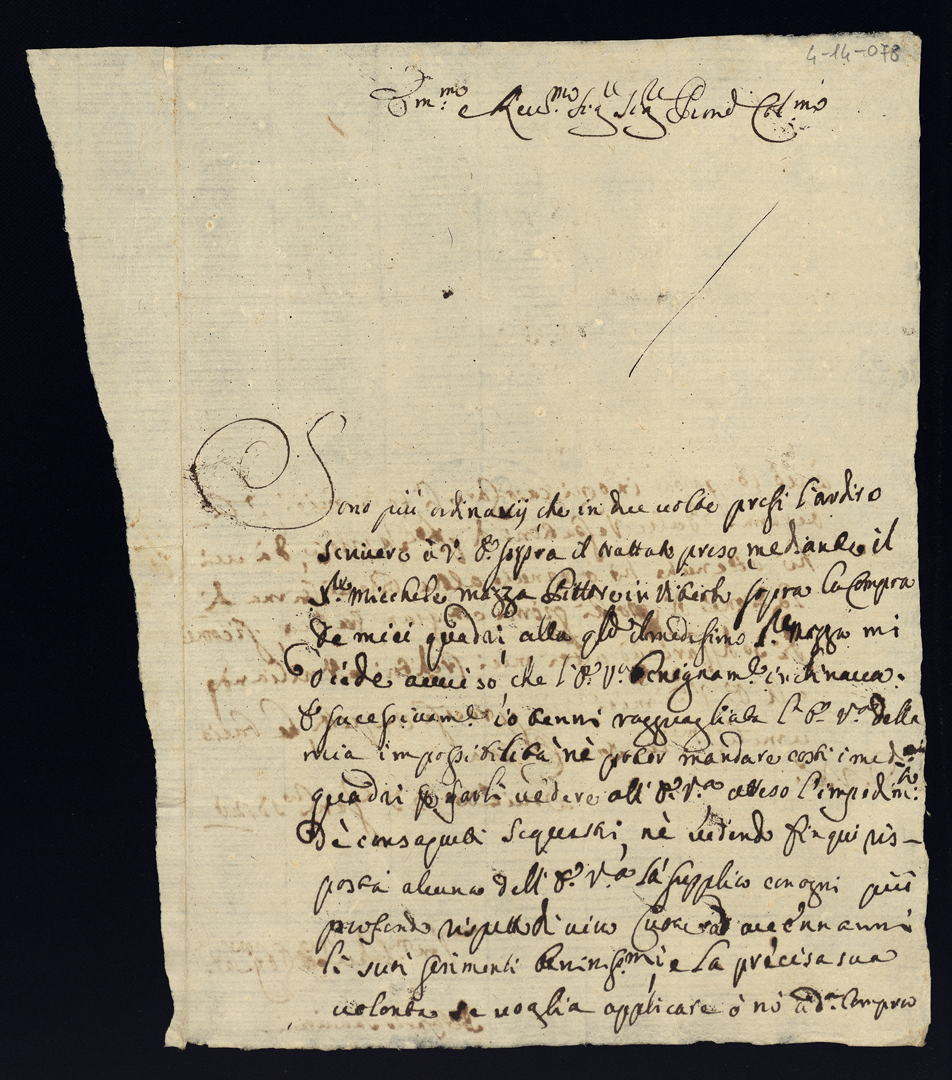 4-14-078
Em.mo e Reu.mo Sig.r Sig.r Pron Col.mo
Sono più ordinarij che in due uolte presi l'ardire
scriuere à V. E. sopra il trattato preso mediante il
S.r Micchele Mazza Pittore in sopra la Compra
de miei quadri, alla q.le il medesimo S.r Mazza mi
diede auuiso, che l'E. V.a benignam.te inclinaua.
E sucessiuam.te io tenni ragguagliata l'E. V.a della
mia impossibilità nè poter mandare costì i med.mi
quadri p farli uedere all'E. V.a atteso l'impedim.to
dè consaputi sequestri, nè uedendo fin qui ris-
posta alcuna dell'E. V.a la supplico con ogni più
profondo rispetto di uino accennarmi
li suoi sentimenti beniniss.mi e la precisa sua
uolontà se uoglia applicare ò nò à d.a Compra